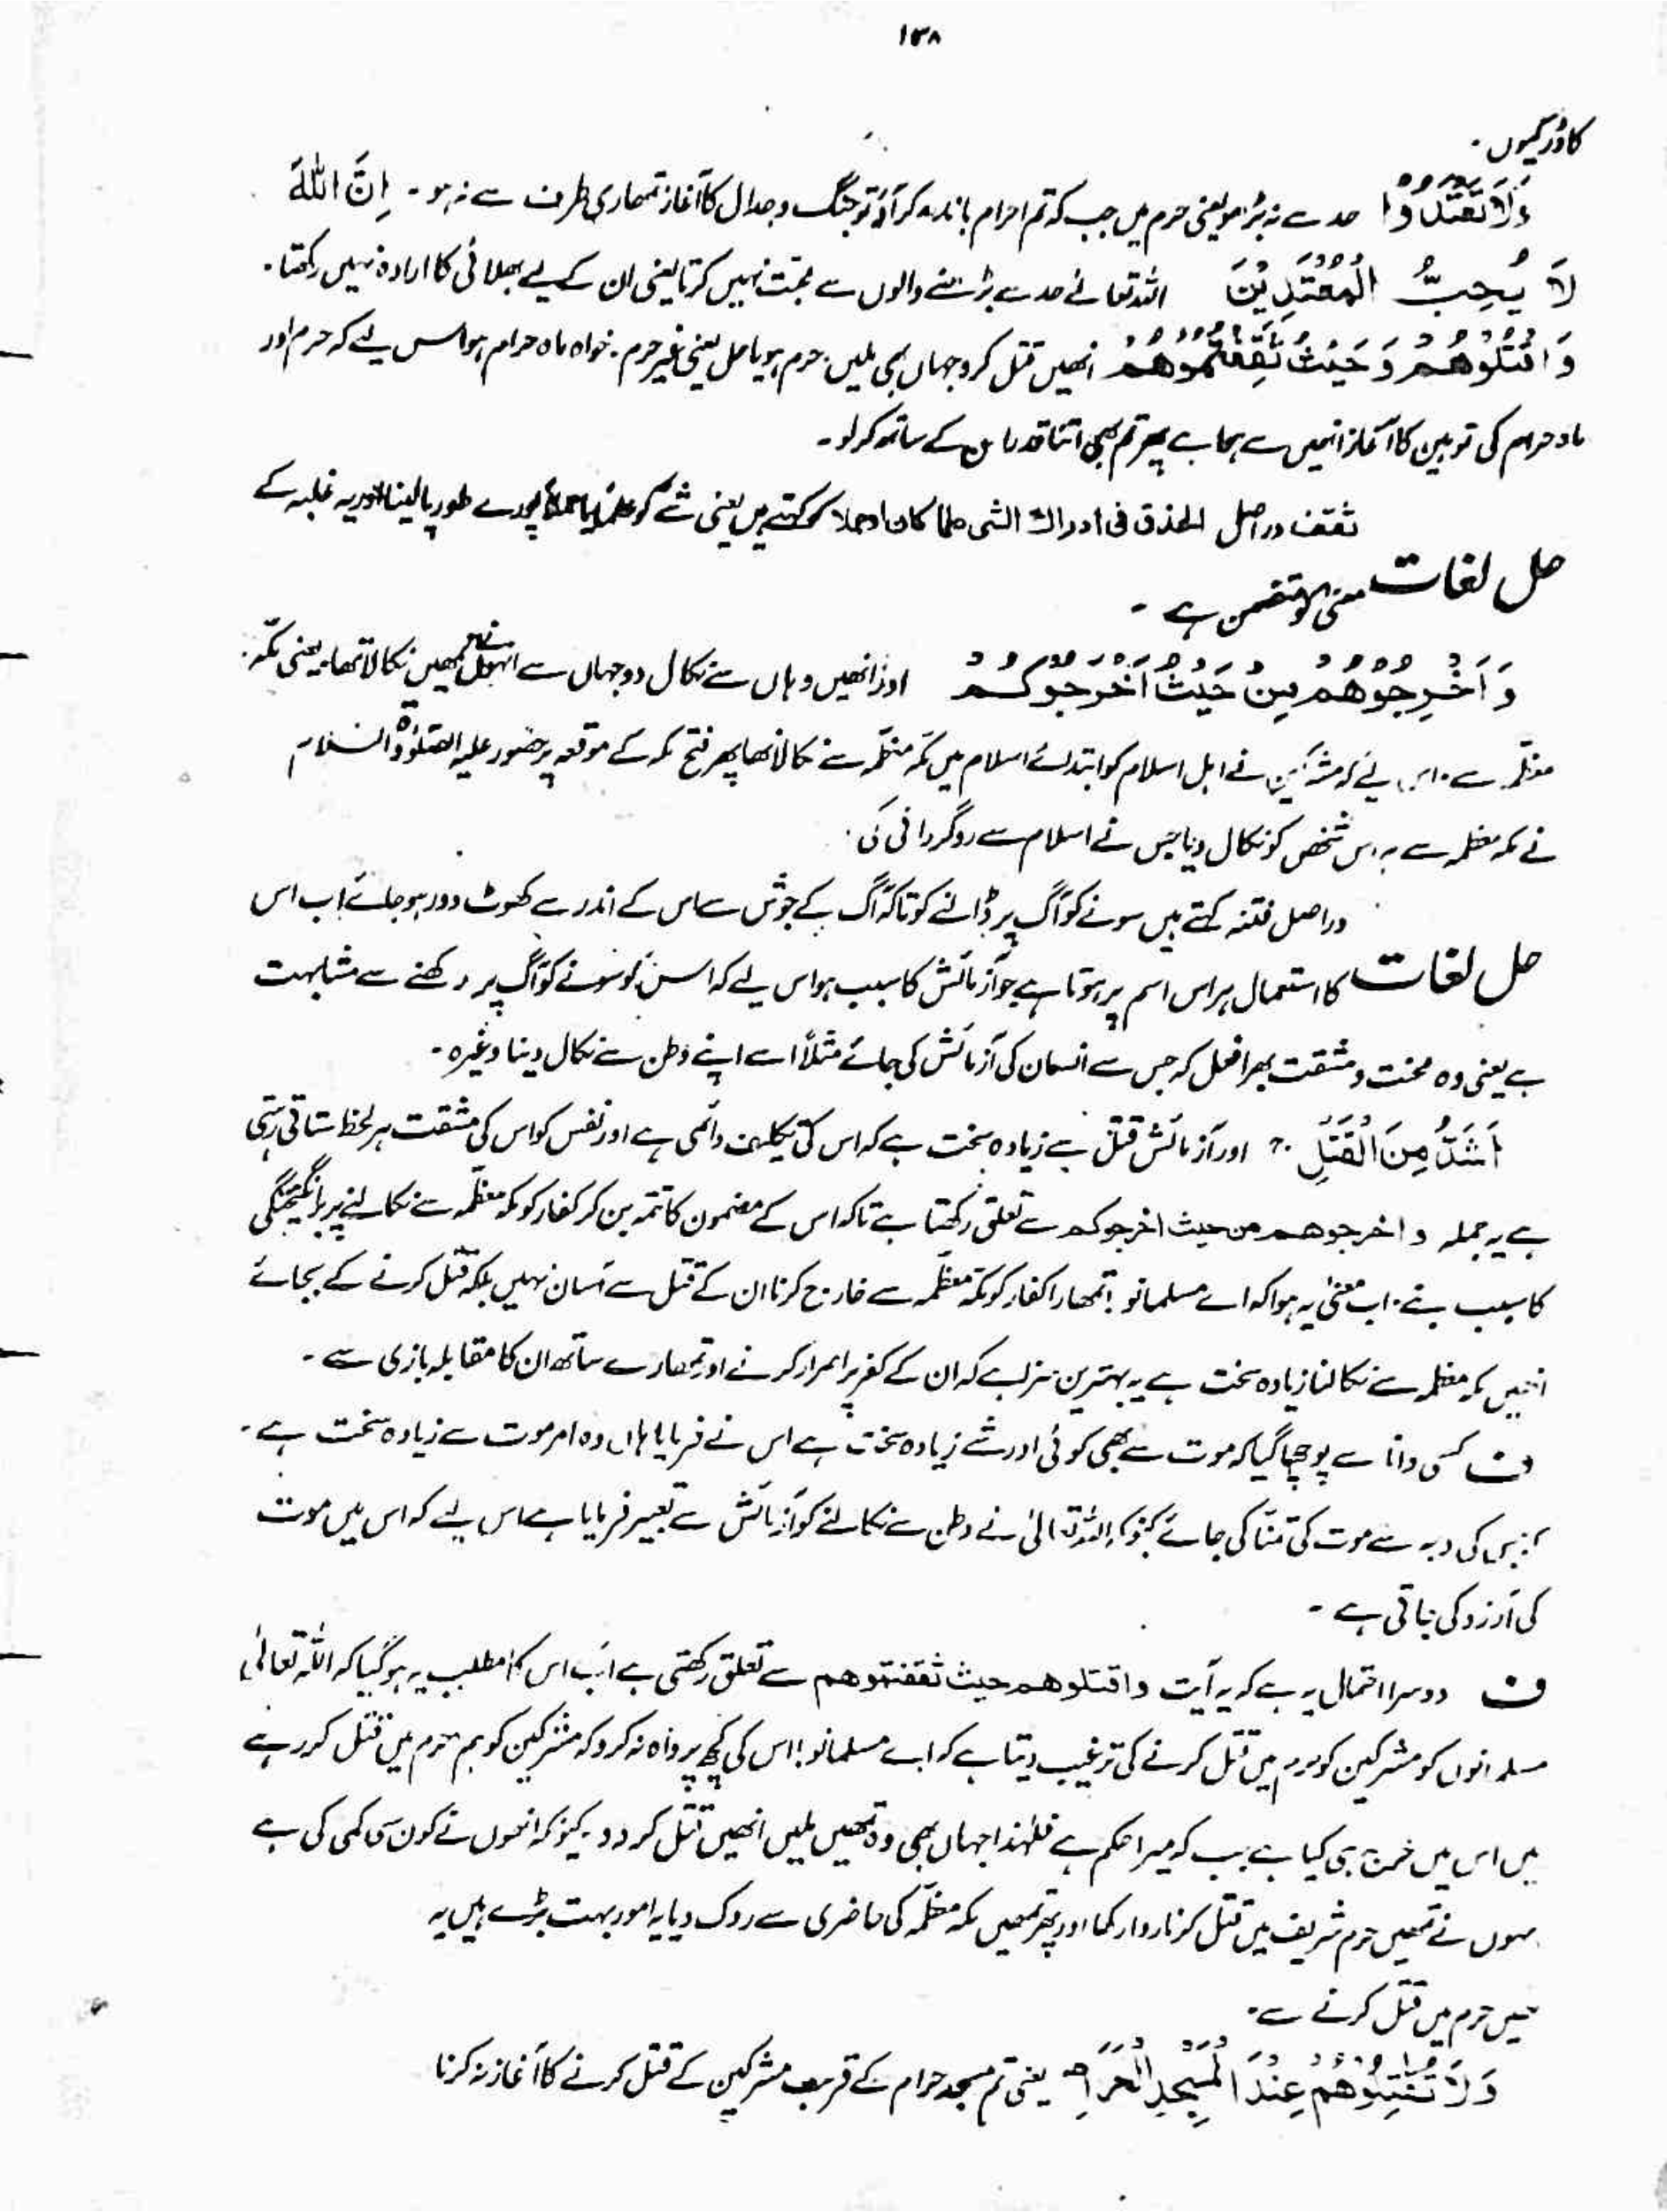 ۱۳۸
کا ڈر کیوں۔
وَلَا تَعْتَدُوْا حد سے نہ بڑھو یعنی حرم میں جب کہ تم احرام باندھ کر آؤ تو جنگ و جدال کا آغاز تمھاری طرف سے نہ ہو۔ اِنَّ اللّٰهَ
لَا يُحِبُّ الْمُعْتَدِيْنَ اللہ تعالےٰ حد سے بڑھنے والوں سے محبت نہیں کرتا یعنی ان کے لیے بھلائی کا ارادہ نہیں رکھتا۔
وَاقْتُلُوْهُمْ وَحَيْثُ ثَقِفْتُمُوْهُمْ انھیں قتل کرو جہاں بھی ملیں، حرم ہو یا حل یعنی غیر حرم۔ خواہ ماہ حرام ہو اس لیے کہ حرم اور
ماہ حرام کی توہین کا آغاز انھیں سے ہوا ہے پھر تم بھی اتنا قدر ان کے ساتھ کر لو۔
ثقف دراصل الحذق فی ادراك الشی علما کان او عملا کو کہتے ہیں یعنی شے کو علمًا یا عملاً پورے طور پا لینا اور یہ غلبہ کے
حل لغات معنی کو متضمن ہے۔
وَاَخْرِجُوْهُمْ مِنْ حَيْثُ اَخْرَجُوْكُمْ اور انھیں وہاں سے نکال دو جہاں سے انہوں نے تمھیں نکالا تھا۔ یعنی مکہ
معظمہ سے۔ اس لیے کہ مشرکین نے اہل اسلام کو ابتدائے اسلام میں مکہ معظمہ سے نکالا تھا پھر فتح مکہ کے موقعہ پر حضور علیہ الصلوٰۃ والسلام
نے مکہ معظمہ سے ہر اس شخص کو نکال دیا جس نے اسلام سے روگردانی کی۔
دراصل فتنہ کہتے ہیں سونے کو آگ پر ڈالنے کو تاکہ آگ کے جوش سے اس کے اندر سے کھوٹ دور ہو جائے اب اس
حل لغات کا استعمال ہر اس اسم پر ہوتا ہے جو آزمائش کا سبب ہو اس لیے کہ اس کو سونے کو آگ پر رکھنے سے مشابہت
ہے یعنی وہ محنت و مشقت بھرا فعل کہ جس سے انسان کی آزمائش کی جائے مثلاً اسے اپنے وطن سے نکال دینا وغیرہ۔
اَشَدُّ مِنَ الْقَتْلِ اور آزمائش قتل سے زیادہ سخت ہے کہ اس کی تکلیف دائمی ہے اور نفس کو اس کی مشقت ہر لحظ ستاتی رہتی
ہے یہ جملہ و اخرجوھم من حیث اخرجوکم سے تعلق رکھتا ہے تاکہ اس کے مضمون کا تتمہ بن کر کفار کو مکہ معظمہ سے نکالنے پر برانگیختگی
کا سبب بنے۔ اب معنیٰ یہ ہوا کہ اے مسلمانو! تمھارا کفار کو مکہ معظمہ سے خارج کرنا ان کے قتل سے آسان نہیں بلکہ قتل کرنے کے بجائے
انھیں مکہ معظمہ سے نکالنا زیادہ سخت ہے یہ بہترین سزا ہے کہ ان کے کفر پر اصرار کرنے اور تمھارے ساتھ ان کا مقابلہ بازی سے۔
ف کسی دانا سے پوچھا گیا کہ موت سے بھی کوئی اور شے زیادہ سخت ہے اس نے فرمایا ہاں وہ امر موت سے زیادہ سخت ہے۔
جس کی وجہ سے موت کی تمنّا کی جائے کیونکہ اللہ تعالیٰ نے وطن سے نکالنے کو آزمائش سے تعبیر فرمایا ہے اس لیے کہ اس میں موت
کی آرزو کی جاتی ہے۔
ف دوسرا احتمال یہ ہے کہ یہ آیت واقتلوھم حیث ثقفتموھم سے تعلق رکھتی ہے اب اس کا مطلب یہ ہو گیا کہ اللہ تعالیٰ
مسلمانوں کو مشرکین کو حرم میں قتل کرنے کی ترغیب دیتا ہے کہ اے مسلمانو! اس کی کچھ پرواہ نہ کرو کہ مشرکین کو ہم حرم میں قتل کر رہے
ہیں اس میں حرج ہی کیا ہے جب کہ میرا حکم ہے فلہٰذا جہاں بھی وہ تمھیں ملیں انھیں قتل کر دو۔ کیونکہ انھوں نے کون سی کمی کی ہے
نے تمھیں حرم شریف میں قتل کرنا روا رکھا اور پھر تمھیں مکہ معظمہ کی حاضری سے روک دیا یہ امور بہت بڑے ہیں یہ
حرم میں قتل کرنے سے۔
وَلَا تُقٰتِلُوْهُمْ عِنْدَ الْمَسْجِدِ الْحَرَامِ یعنی تم مسجد حرام کے قریب مشرکین کے قتل کرنے کا آغاز نہ کرنا